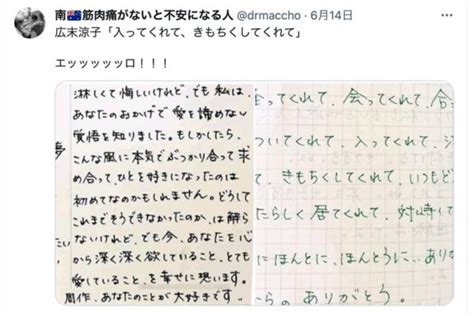 南🇦🇺筋肉痛がないと不安になる人 @drmaccho・6月14日
広末涼子「入ってくれて、きもちくしてくれて」
エッッッッッロ！！！
淋しくて悔しいけれど、でも私は、
あなたのおかげで愛を諦めない
覚悟を知りました。もしかしたら、
こんな風に本気でぶつかり合って求
め合って、ひとを好きになったのは
初めてなのかもしれません。どうして
これまでそうできなかったのか、は解ら
ないけれど、でも今、あなたを心
から深く深く欲していること、とても
愛していること、を幸せに思います。
周作、あなたのことが大好きです。
会ってくれて、会ってくれて、
ついてくれて、入ってくれて、
て、きもちくしてくれて、いつも
たらしく居てくれて、対峙して
にほんとに、ほんとうに、
らの ありがとう。